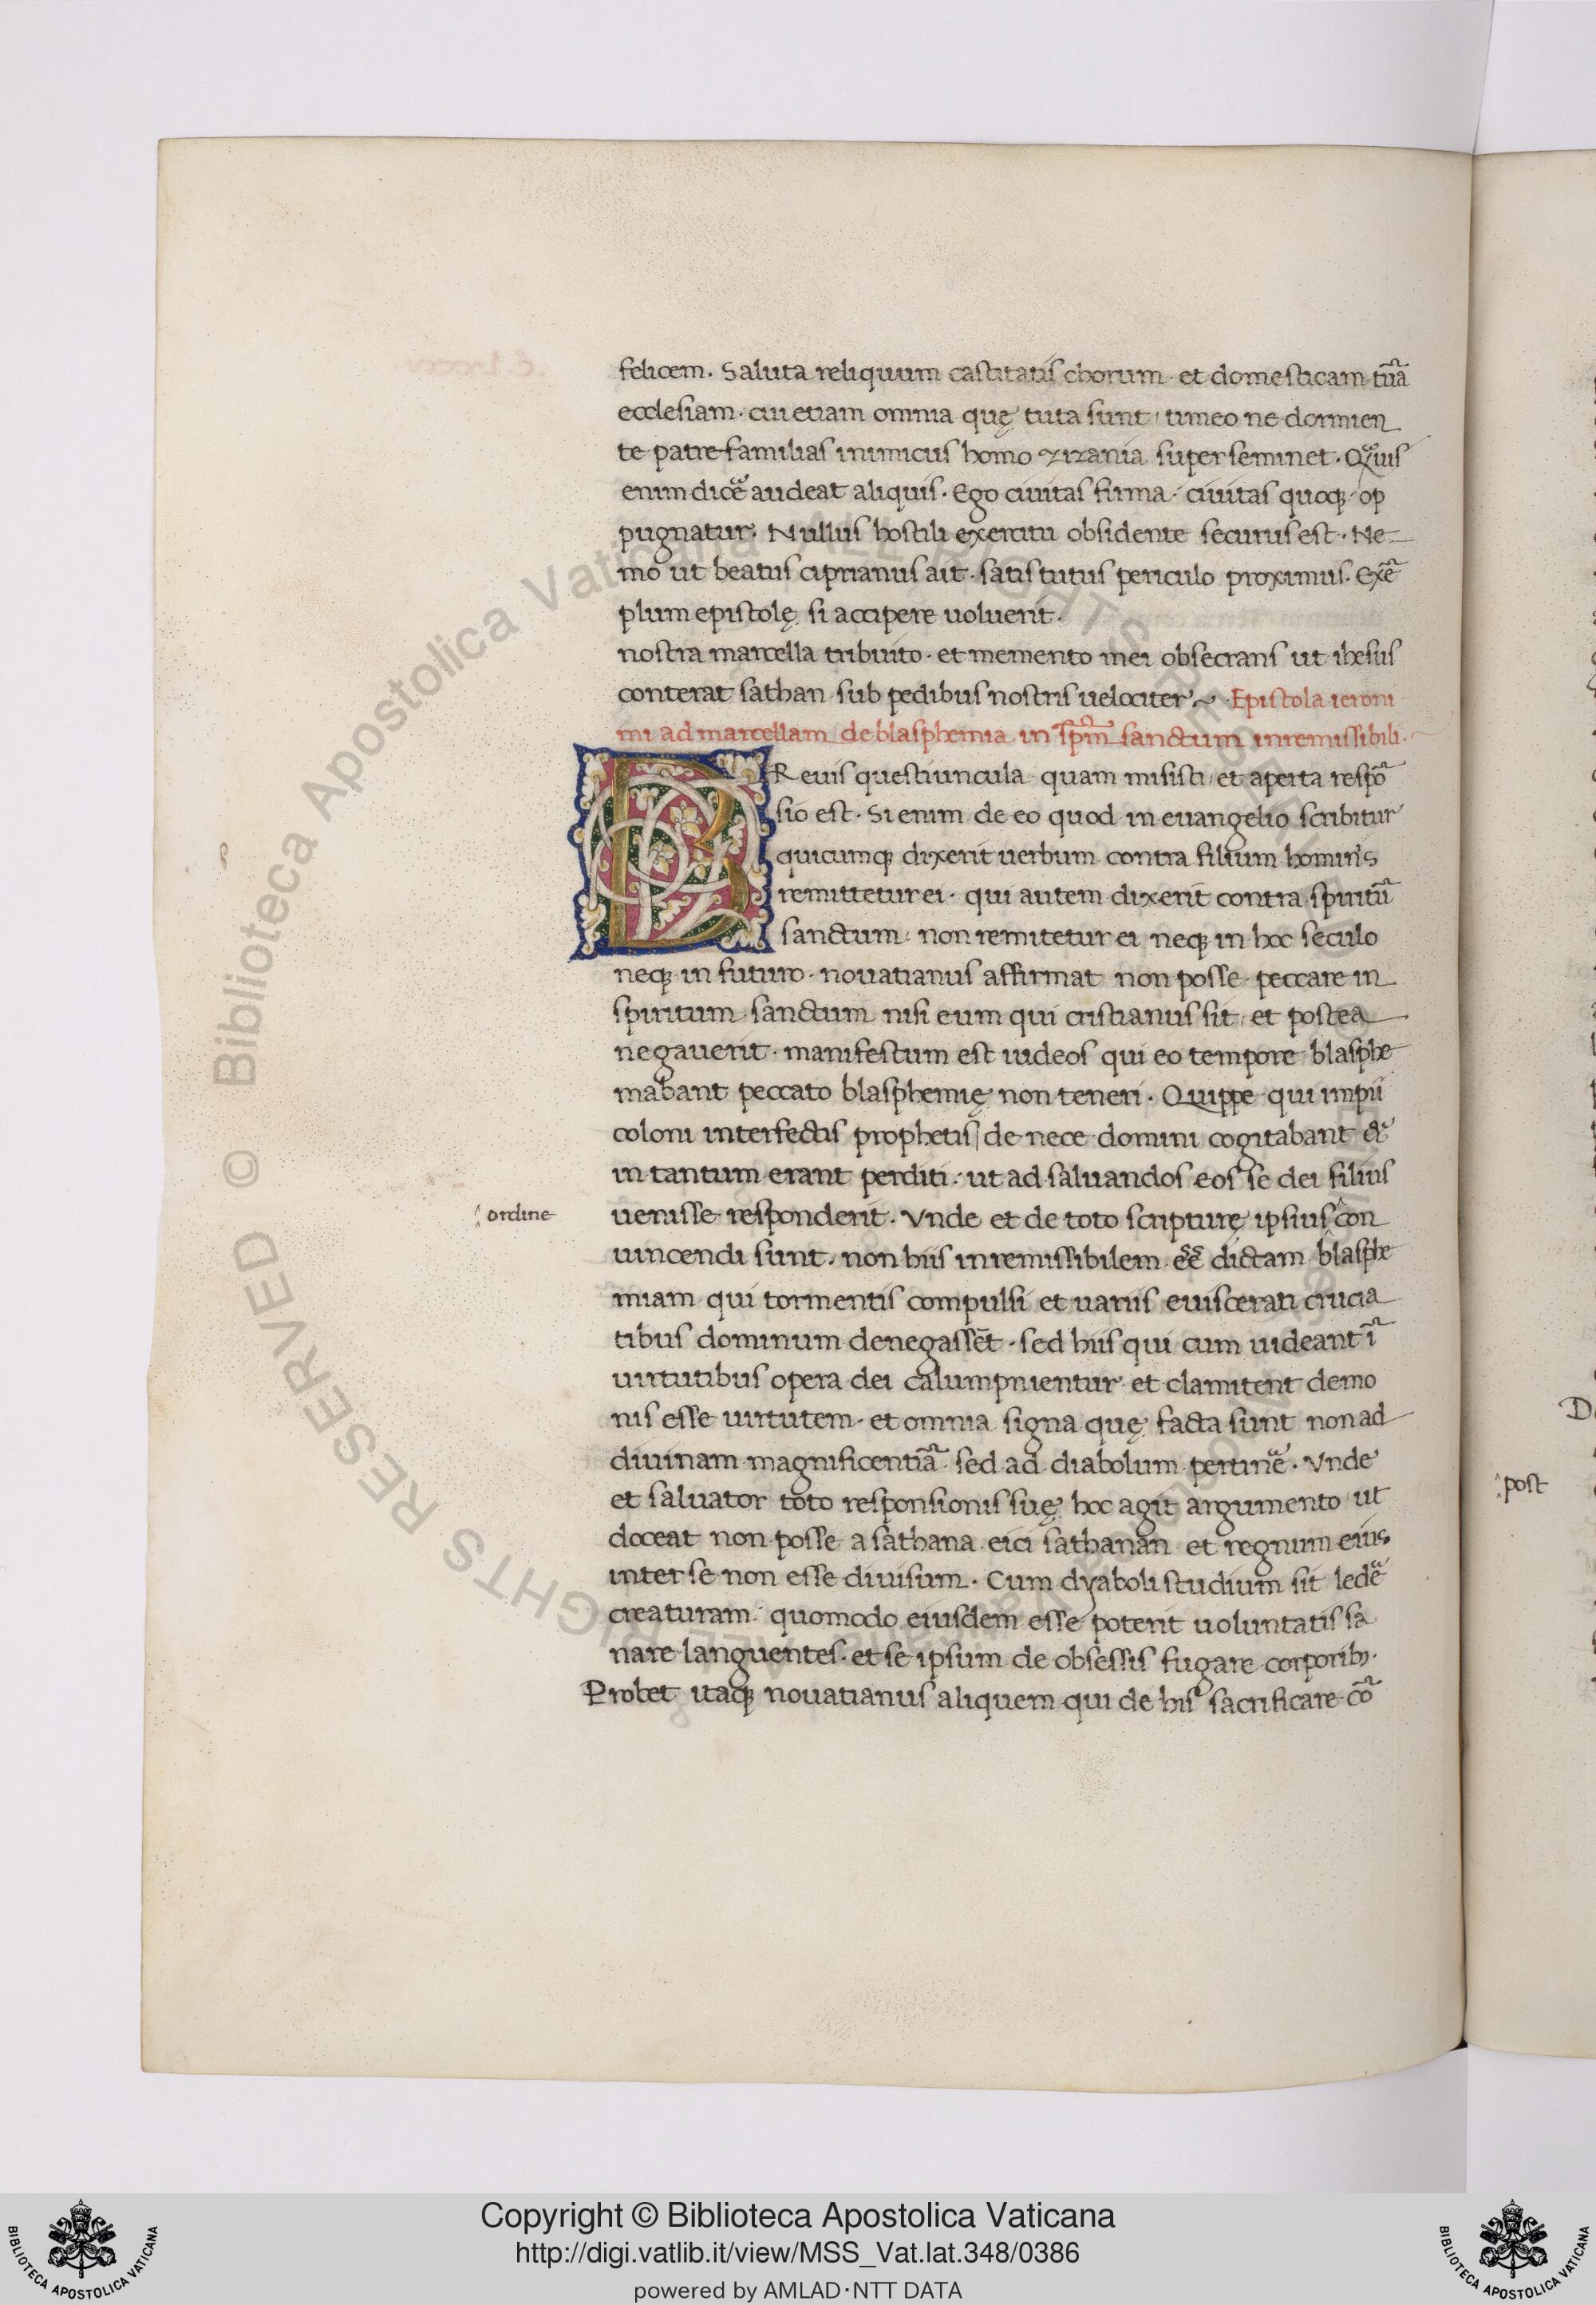 felicem. Saluta reliquum castitatis chorum et domesticam tuã
ecclesiam. cui etiam omnia quę tuta sunt, timeo ne dormien
te patre familias inimicus homo zizania superseminet.
enim dicẽ audeat aliquis. Ego ciuitas firma. ciuitas quoqꝫ op
pugnatur. Nullus hostili exercitu obsidente securus est. Ne-
mo ut beatus ciprianus ait. satis tutus periculo proximus. Exẽ
plum epistolę si accipere uoluerit.
nostra marcella tribuito. et memento mei obsecrans ut ihesus
conterat sathan sub pedibus nostris uelociter. Epistola ieroni
mi ad marcellam de blasphemia in sp̃m sanctum inremissibili.
BReuis questiuncula quam misisti, et aperta respõ
sio est. Si enim de eo quod in euangelio scribitur
quicumqꝫ dixerit uerbum contra filium hominis
remittetur ei. qui autem dixerit contra spiritũ
sanctum. non remitetur ei neqꝫ in hoc seculo
neqꝫ in futuro. nouatianus affirmat non posse peccare in
spiritum sanctum nisi eum qui cristianus sit, et postea
negauerit. manifestum est iudeos qui eo tempore blasphe
mabant peccato blasphemię non teneri. Quippe qui impii
coloni interfectis prophetis de nece domini cogitabant &
in tantum erant perditi. ut ad saluandos eos se dei filius
ordine
uenisse responderit. Vnde et de toto scripturę ipsius con
uincendi sunt. non hiis inremissibilem eẽ dictam blasphe
miam qui tormentis compulsi et uariis euiscerati crucia
tibus dominum denegassẽt. sed hiis qui cum uideant ĩ
uirtutibus opera dei calumpnientur et clamitent demo
nis esse uirtutem. et omnia signa quę facta sunt non ad
diuinam magnificentiã sed ad diabolum pertinẽ. Vnde
et saluator toto responsionis suę hoc agit argumento ut
doceat non posse a sathana eici sathanan et regnum eius
inter se non esse diuisum. Cum dyaboli studium sit ledẽ
creaturam. quomodo eiusdem esse poterit uoluntatis sa
nare languentes. et se ipsum de obsessis fugare coporibꝫ.
Probet itaqꝫ nouatianus aliquem qui de his sacrificare cõ
post
© Biblioteca Apostolica Vaticana ALL RIGHTS RESERVED
Copyright © Biblioteca Apostolica Vaticana
http://digi.vatlib.it/view/MSS_Vat.lat.348/0386
powered by AMLAD·NTT DATA
BIBLIOTECA APOSTOLICA VATICANA
BIBLIOTECA APOSTOLICA VATICANA